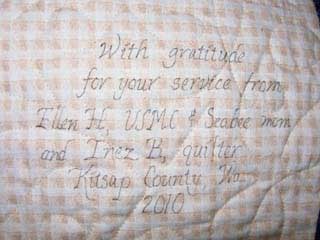 With gratitude
for your service from
Ellen H, USMC & Seabee mom
and Inez B, quilter
Kitsap County, Wa.
2010